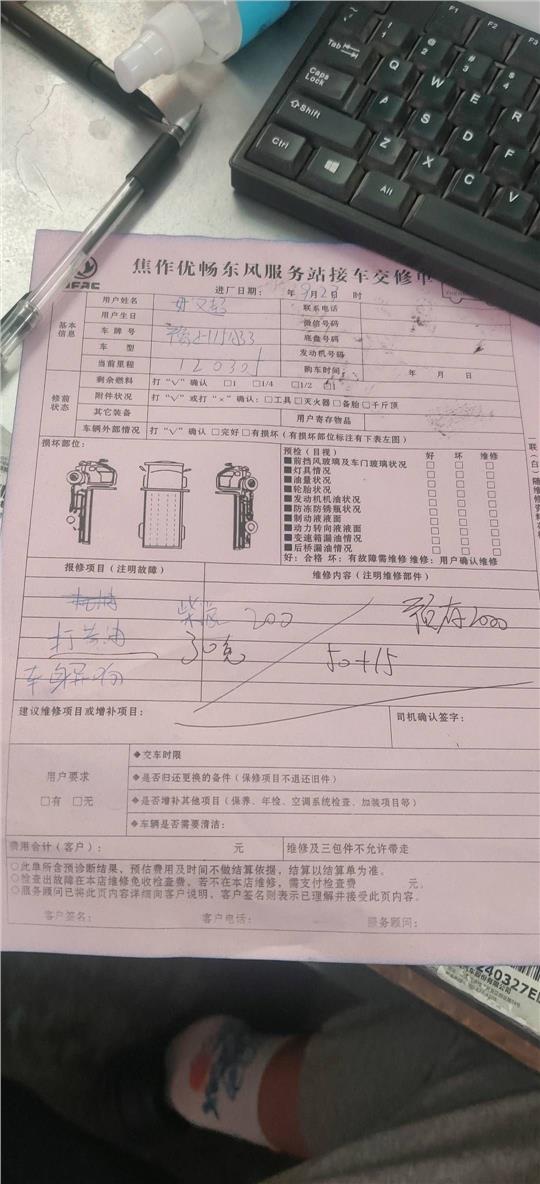 焦作优畅东风服务站接车交修单
进厂日期： 年 9月2日 时
基本信息
用户姓名 联系电话
用户生日 微信号码
车牌号 底盘号码
车 型 发动机号码
当前里程 120305 购车时间： 年 月 日
修前状态
剩余燃料 打“√”确认 □1 □1/4 □1/2 □1
附件状况 打“√”或打“×”确认：□工具□灭火器□备胎□千斤顶
其它装备 用户寄存物品
车辆外部情况 打“√”确认 □完好□有损坏（有损坏部位标注有下表左图）
损坏部位：
预检（目视） 好 坏 维修
■前挡风玻璃及车门玻璃状况 □ □ □
■灯具情况 □ □ □
■油量状况 □ □ □
■轮胎状况 □ □ □
■发动机机油状况 □ □ □
■防冻防锈瓶状况 □ □ □
■制动液液面 □ □ □
■动力转向液液面 □ □ □
■变速箱漏油情况 □ □ □
■后桥漏油情况 □ □ □
好：合格 坏：有故障需维修 维修：用户确认维修
报修项目（注明故障） 维修内容（注明维修部件）
柴滤 200 预存2000
打黄油 30元 50+15
车身异响
建议维修项目或增补项目： 司机确认签字：
用户要求
□有 □无
◆交车时限
◆是否归还更换的备件（保修项目不退还旧件）
◆是否增补其他项目（保养、年检、空调系统检查、加装项目等）
◆车辆是否需要清洁：
费用合计（客户）： 元 维修及三包件不允许带走
○此单所含预诊断结果、预估费用及时间不做结算依据，结算以结算单为准。
○检查出故障在本店维修免收检查费，若不在本店维修，需支付检查费 元。
○服务顾问已将此页内容详细向客户说明，客户签名则表示已理解并接受此页内容。
客户签名： 客户电话： 服务顾问：
240327E
Tab
Caps Lock
Shift
Ctrl
Alt
F1
F2
F3
Q
W
E
R
A
S
D
F
Z
X
C
V